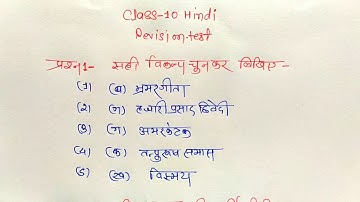 Class-10 Hindi
Revision-test
प्रश्न1- सही विकल्प चुनकर लिखिए-
(1) (ब) भ्रमरगीता
(2) (ज) हजारी प्रसाद द्विवेदी
(3) (ग) अमरकंटक
(4) (क) तत्पुरुष समास
(5) (ख) विस्मय